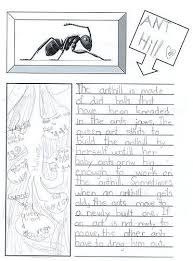 ANT
Hill
The anthill is made
of dirt balls that
have been kneaded
in the ants jaws. The
queen ant starts to
build the anthill by
herself until her
baby ants grow big
enough to work on
the anthill. Sometimes
when an anthill gets
old, the ants move to
a newly built one. If
an ant is not ready to
move, the other ants
have to drag him out.